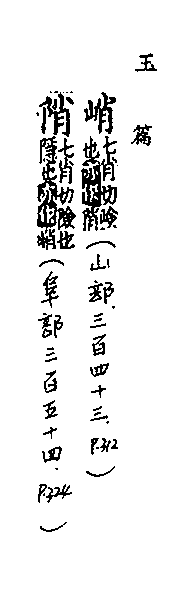 玉篇
峭 七肖切嶮也亦作陗(山部.三百四十三.P.312)
陗 七肖切險也 也亦作峭(阜部三百五十四.P.324)